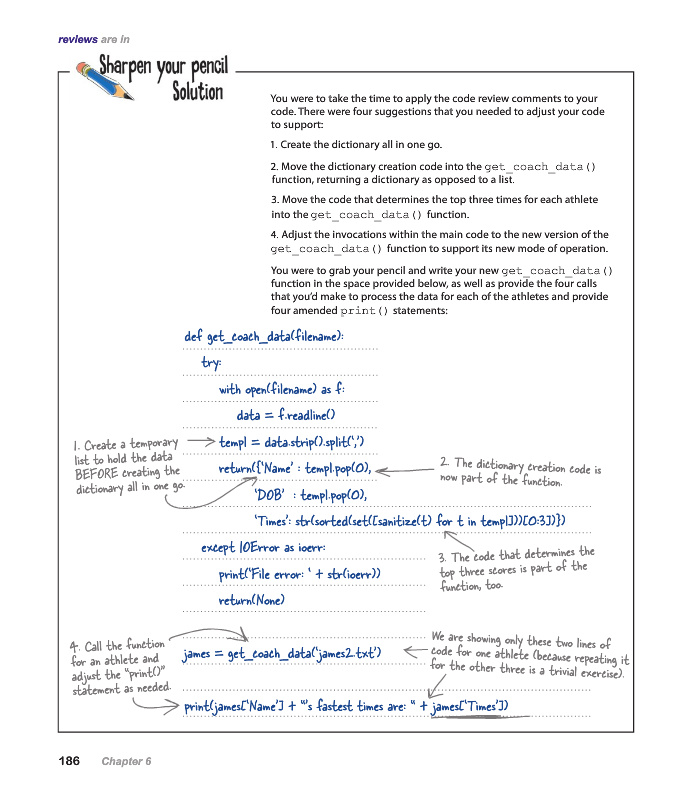 reviews are in
Sharpen your pencil
Solution
You were to take the time to apply the code review comments to your
code. There were four suggestions that you needed to adjust your code
to support:
1. Create the dictionary all in one go.
2. Move the dictionary creation code into the get_coach_data()
function, returning a dictionary as opposed to a list.
3. Move the code that determines the top three times for each athlete
into the get_coach_data() function.
4. Adjust the invocations within the main code to the new version of the
get_coach_data() function to support its new mode of operation.
You were to grab your pencil and write your new get_coach_data()
function in the space provided below, as well as provide the four calls
that you'd make to process the data for each of the athletes and provide
four amended print() statements:
def get_coach_data(filename):
try:
with open(filename) as f:
data = f.readline()
templ = data.strip().split(',')
return({'Name' : templ.pop(0),
'DOB' : templ.pop(0),
'Times': str(sorted(set([sanitize(t) for t in templ]))[0:3])})
except IOError as ioerr:
print('File error: ' + str(ioerr))
return(None)
james = get_coach_data('james2.txt')
print(james['Name'] + "'s fastest times are: " + james['Times'])
1. Create a temporary
list to hold the data
BEFORE creating the
dictionary all in one go.
2. The dictionary creation code is
now part of the function.
3. The code that determines the
top three scores is part of the
function, too.
4. Call the function
for an athlete and
adjust the "print()"
statement as needed.
We are showing only these two lines of
code for one athlete (because repeating it
for the other three is a trivial exercise).
186 Chapter 6